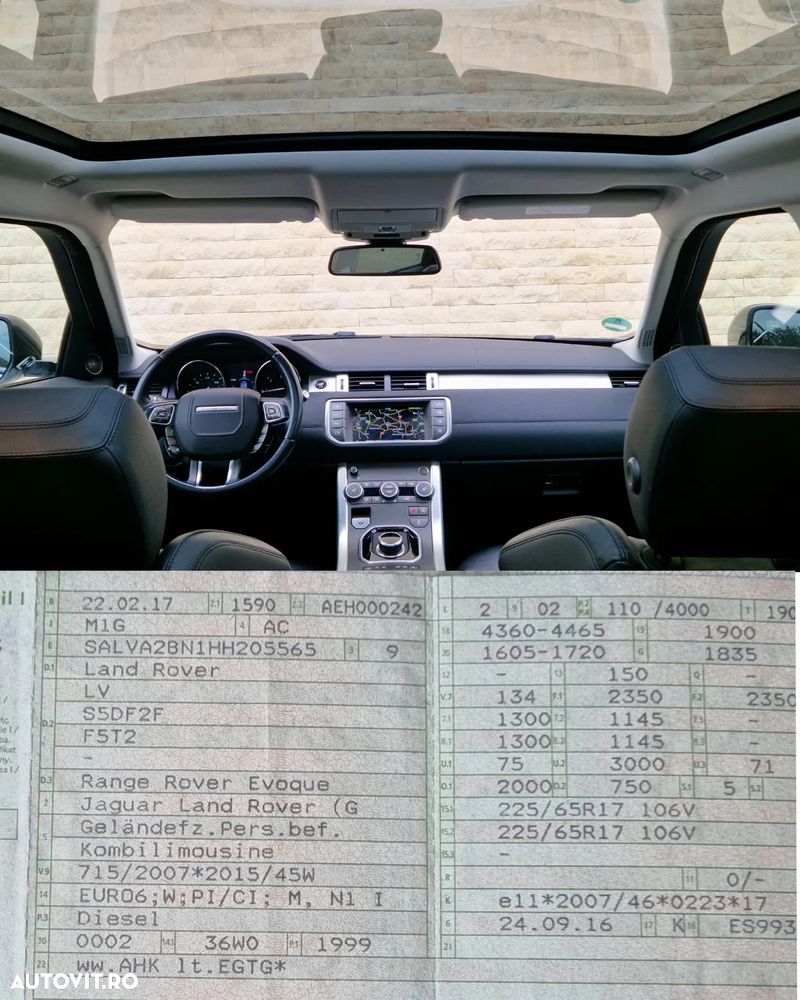 B 22.02.17 2.1 1590 2.2 AEH000242
J M1G 4 AC
E SALVA2BN1HH205565 3 9
D.1 Land Rover
LV
D.2 S5DF2F
F5T2
-
D.3 Range Rover Evoque
2 Jaguar Land Rover (G
5 Geländefz.Pers.bef.
Kombilimousine
V.9 715/2007*2015/45W
14 EURO6;W;PI/CI; M, N1 I
P.3 Diesel
10 0002 14.1 36W0 P.1 1999
22 ww.AHK lt.EGTG*
L 2 9 02 P.2 P.4 110 /4000 T 190
18 4360-4465 19 1900
20 1605-1720 G 1835
12 - 13 150 Q -
V.7 134 F.1 2350 F.2 2350
7.1 1300 7.2 1145 7.3 -
8.1 1300 8.2 1145 8.3 -
U.1 75 U.2 3000 U.3 71
O.1 2000 O.2 750 S.1 5 S.2
15.1 225/65R17 106V
15.2 225/65R17 106V
15.3 -
R 11 0/-
K e11*2007/46*0223*17
6 24.09.16 17 K 16 ES993
21
AUTOVIT.RO